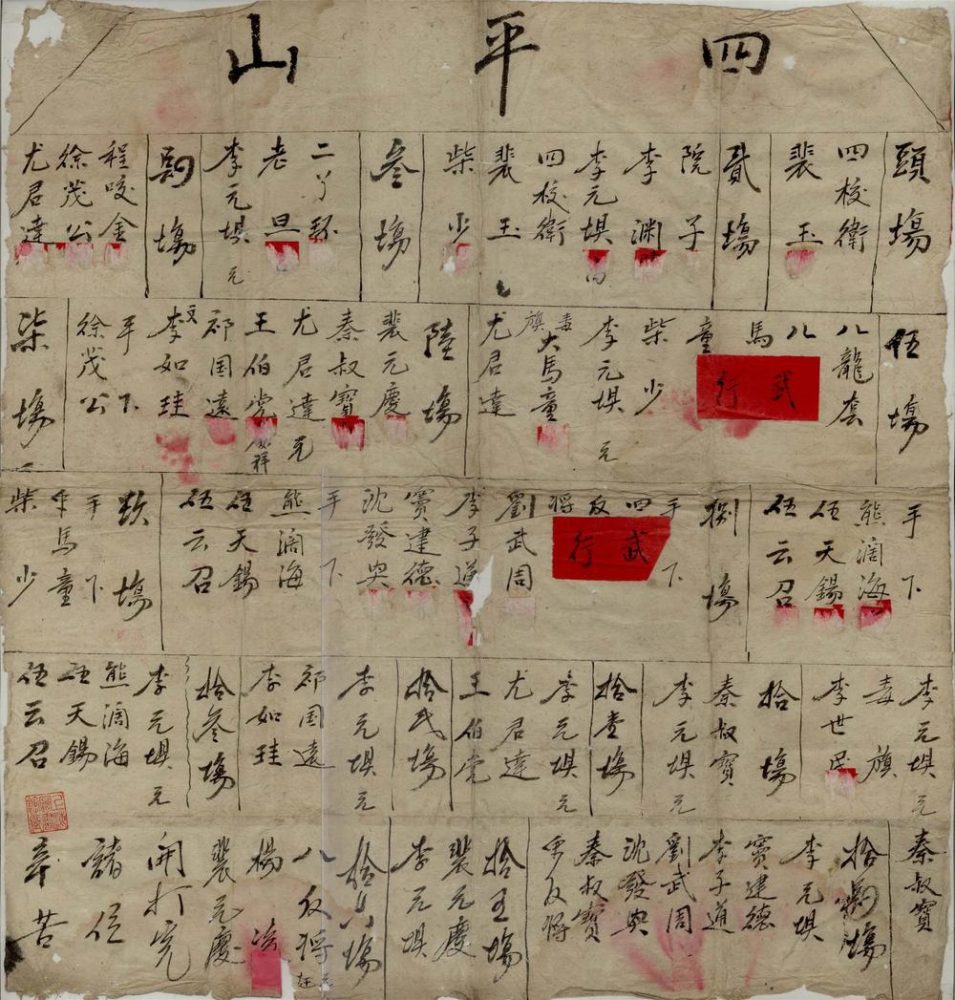 四平山
頭場
四校衛
裴玉
貳場
院子
李渊
李元埧
四校衛
裴玉
柴少
叁場
二丫环
老旦
李元埧 元
場
程咬金
徐茂公
尤君達
伍場
八龍套
八馬童
武行
柴少
李元埧 元
大馬童
毒旗
尤君達
陸場
裴元慶
秦叔寶
尤君達
王伯党
祁国遠
李如珪
手下
徐茂公
柒場
手下
熊濶海
伍天錫
伍云召
捌場
手下
四反將
武行
劉武周
李子道
竇建德
沈發興
手下
熊濶海
伍天錫
伍云召
場
手下
馬童
柴少
李元埧 元
毒旗
李世民
拾場
秦叔寳
李元埧 元
拾壹場
李元埧 元
尤君達
王伯党
拾貳場
李元埧 元
祁国遠
李如珪
拾叁場
李元埧 元
熊濶海
伍天錫
伍云召
秦叔寳
拾場
李元埧
竇建德
李子道
劉武周
沈發興
秦叔寳
反將
拾五場
裴元慶
李元埧
拾六場
八反將
楊
裴元慶
開打完
諸位
辛苦